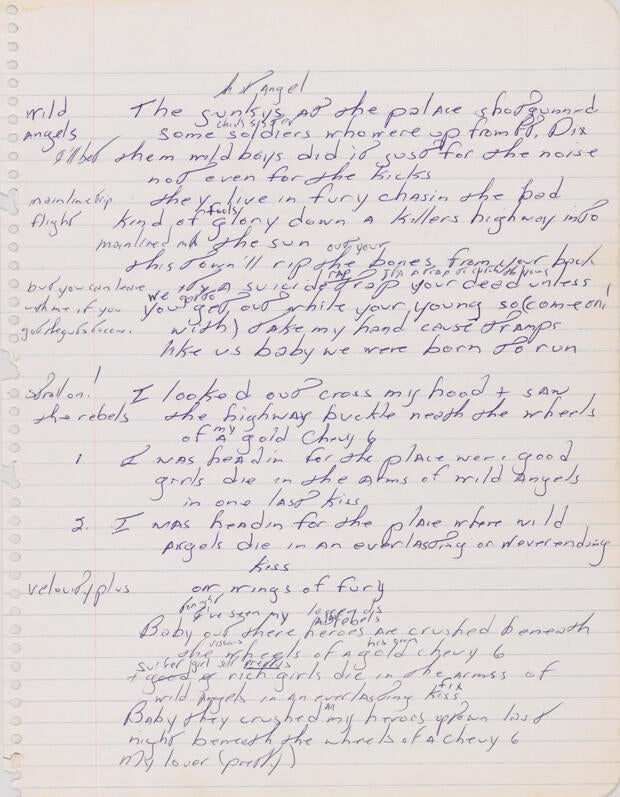 Angel
wild The gunkys at the palace shotgunned
Angels some soldiers who were up from Ft. Dix
I'll bet them wild boys did it just for the noise
not even for the kicks
mainline trip they live in fury chasin the bad
flight kind of glory down a killers highway into
fools
mainlined the sun
out your
this town'll rip the bones from your back
but you can leave its a suicide trap your dead unless
rap its a trap to catch the young
we got to
with me if you you get out while your young so (come on!
got the guts to come. with) take my hand cause tramps
like us baby we were born to run
stroll on! I looked out cross my hood + saw
the rebels the highway buckle neath the wheels
of a gold Chevy 6
my
1. I was headin for the place were good
girls die in the arms of wild Angels
in one last kiss
2. I was headin for the place where wild
Angels die in an everlasting or neverending
kiss
velocity plus on wings of fury
tonight
I've seen my legends
rebels
Baby out there heroes are crushed beneath
vicious his own
the wheels of a gold Chevy 6
surfer girl pretty
+ good rich girls die in the armss of
wild Angels in an everlasting kiss
fix
All
Baby they crushed my heroes uptown last
night beneath the wheels of a Chevy 6
My lover (pretty)